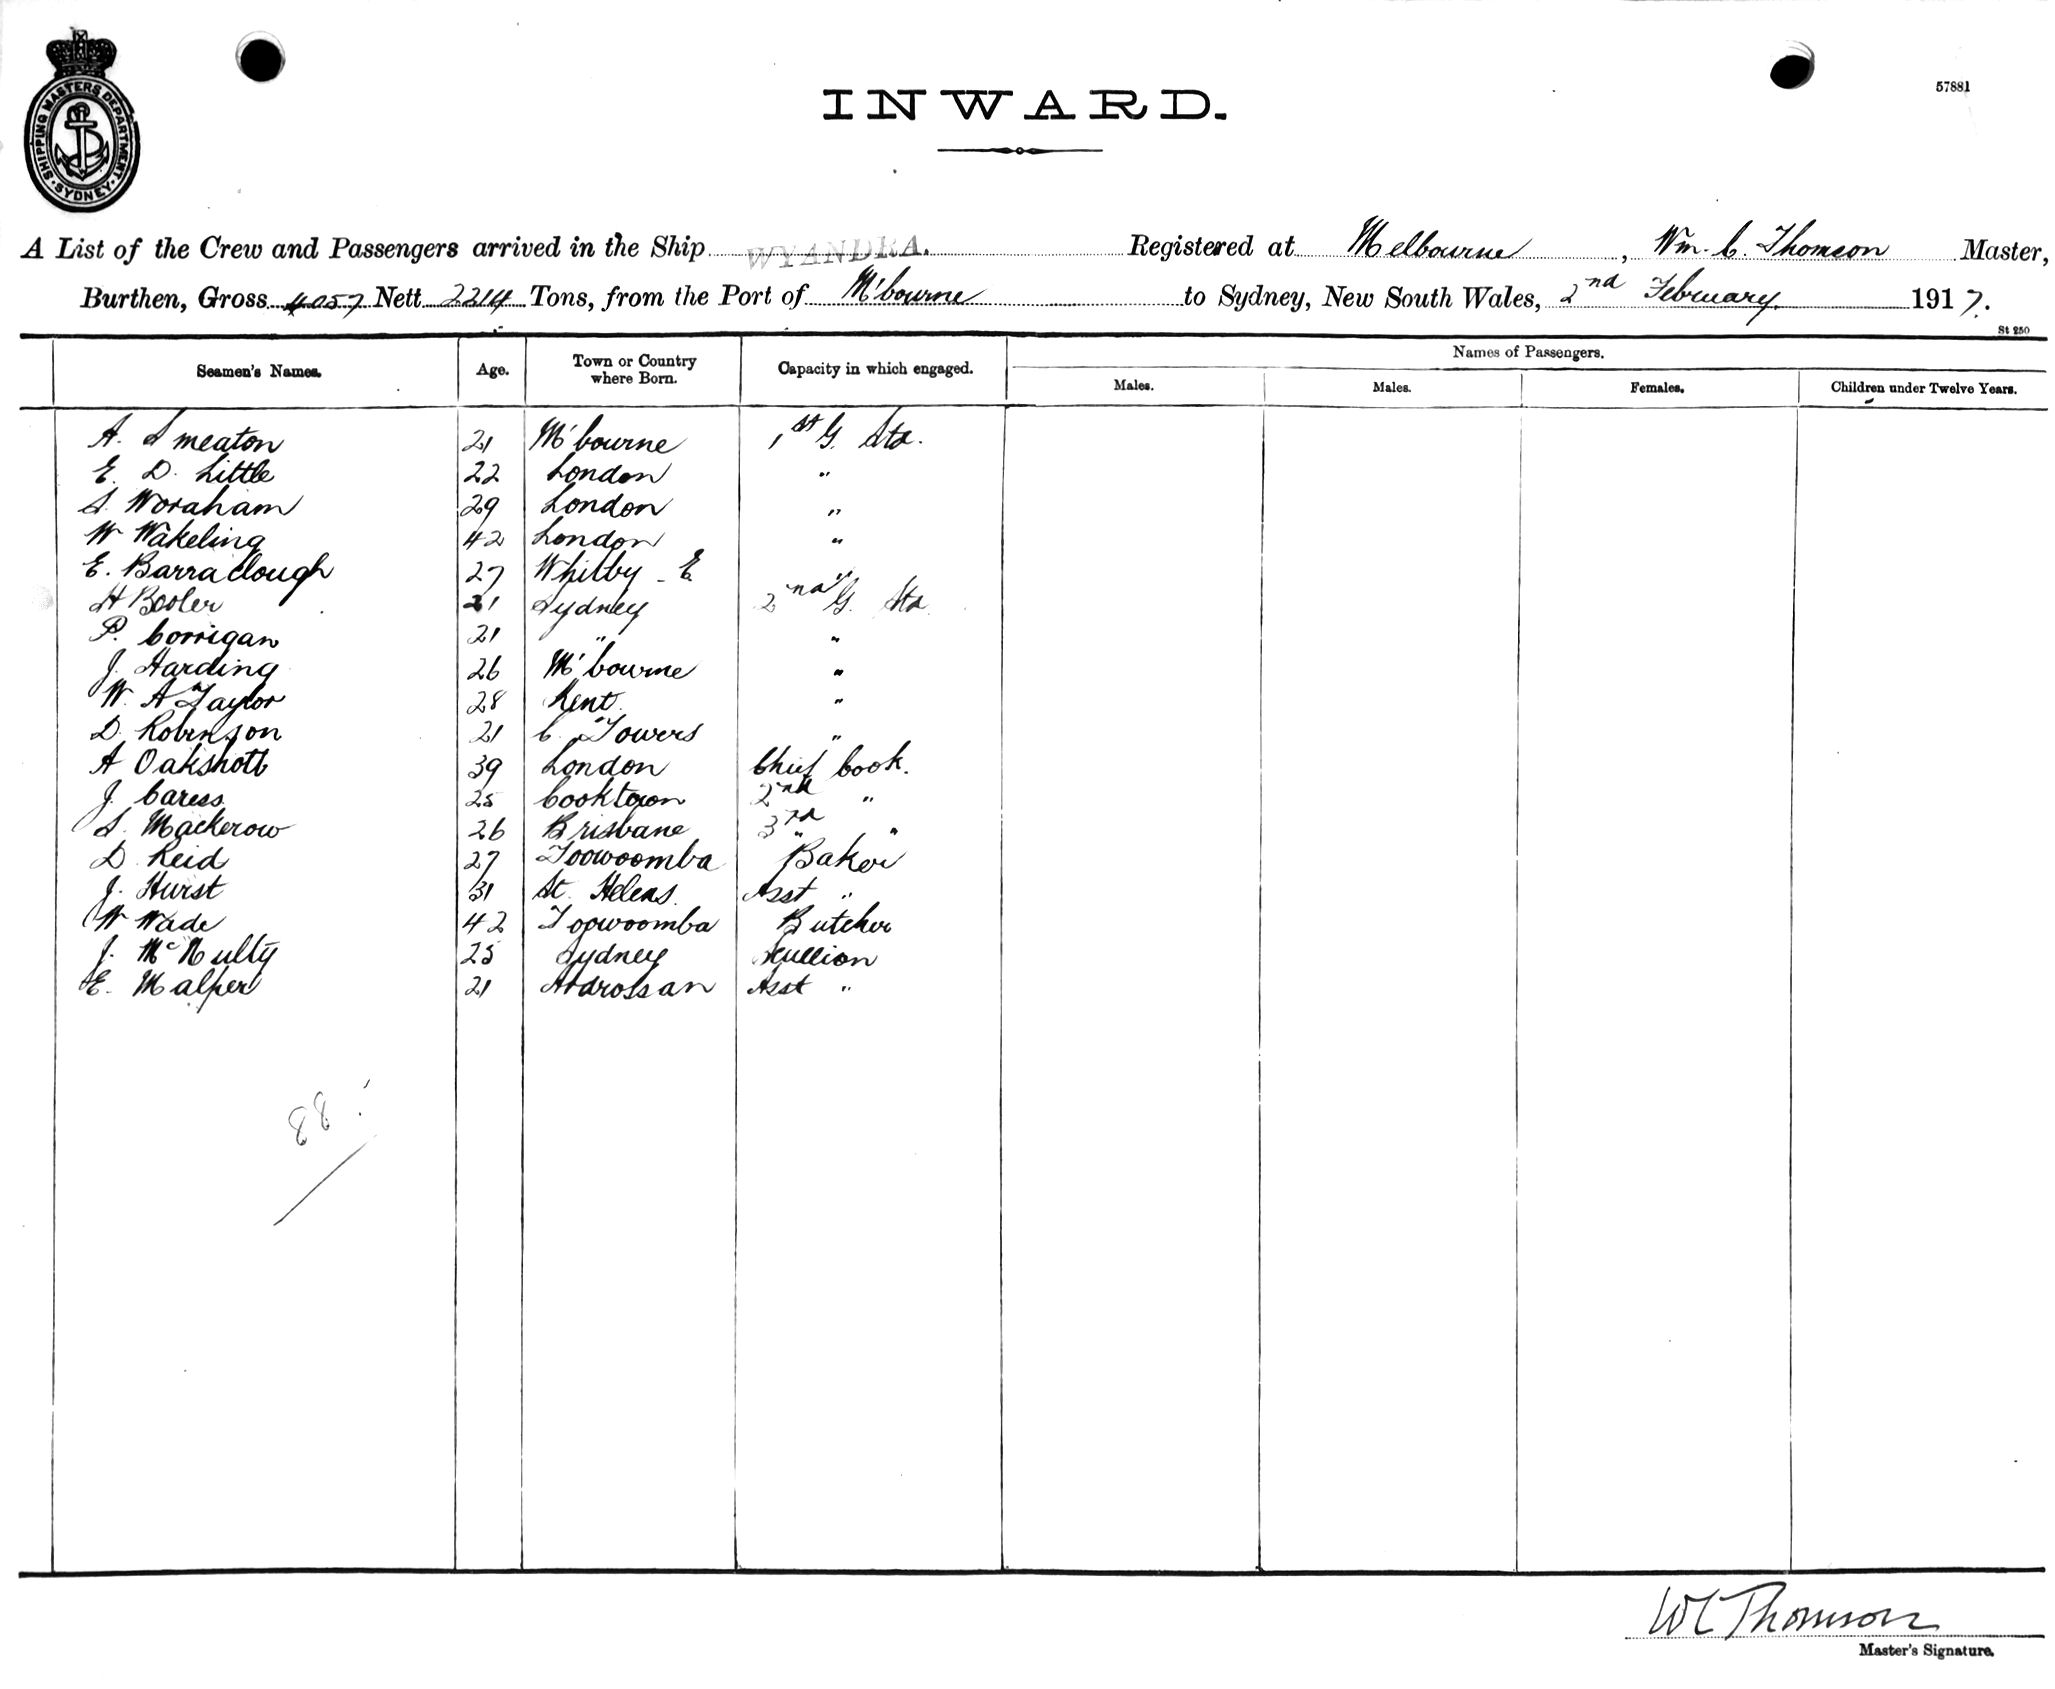 SHIPPING MASTERS DEPARTMENT
SYDNEY
57881
INWARD.
A List of the Crew and Passengers arrived in the Ship WYANDRA. Registered at Melbourne, Wm. C. Thomson Master,
Burthen, Gross 4057 Nett 2214 Tons, from the Port of M'bourne to Sydney, New South Wales, 2nd February 1917.
St 250
Seamen's Names. Age. Town or Country where Born. Capacity in which engaged. Names of Passengers.
Males. Males. Females. Children under Twelve Years.
A. Smeaton 21 M'bourne 1st G. Std.
E. D. Little 22 London "
S. Woraham 29 London "
W Wakeling 42 London "
E. Barraclough 27 Whitby - E "
H Booler 21 Sydney 2nd G. Std
P. Corrigan 21 " "
J. Harding 26 M'bourne "
W. A Taylor 28 Kent. "
D. Robinson 21 C. Towers "
A Oakshott 39 London Chief Cook.
J. Caress 25 Cooktown 2nd "
S. Mackerow 26 Brisbane 3rd "
D. Reid 27 Toowoomba " Baker
J. Hurst 31 St. Helens. Asst "
W Wade 42 Toowoomba Butcher
J. McNulty 25 Sydney Scullion
E. Malper 21 Ardrossan Asst "
88
WC Thomson
Master's Signature.